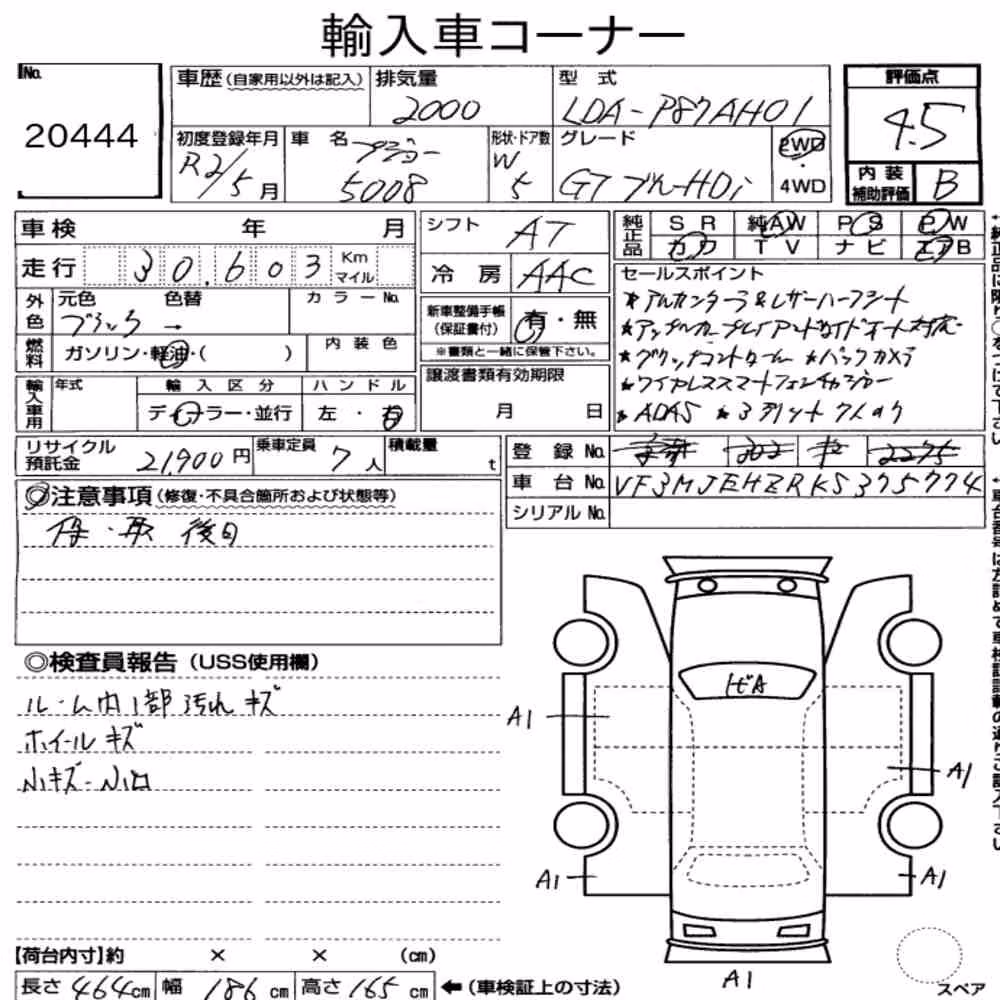 輸入車コーナー
No. 20444
車歴(自家用以外は記入) 排気量 2000 型式 LDA-P87AH01
評価点 4.5
初度登録年月 R2/5月 車名 プジョー 5008 形状・ドア数 W 5 グレード GT ブルーHDi 2WD・4WD
内装補助評価 B
車検 年 月 シフト AT
純正品 SR 純AW PS PW
カワ TV ナビ エアB
走行 30,603 Km マイル 冷房 AAC
外色 元色 ブラック 色替 → カラーNo.
新車整備手帳(保証書付) 有・無
※書類と一緒に保管下さい。
燃料 ガソリン・軽油・( ) 内装色
輸入車用 年式 輸入区分 ディーラー・並行 ハンドル 左・右
譲渡書類有効期限 月 日
セールスポイント
★アルカンターラ&レザーハーフシート
★アップルカープレイアンドロイドオート対応
★グリップコントロール ★バックカメラ
★ワイヤレススマートフォンチャージャー
★ADAS ★3列シート7人のり
リサイクル預託金 21,900円 乗車定員 7人 積載量 t
登録No. 302 2275
車台No. VF3MJEHZRKS375774
シリアルNo.
注意事項(修復・不具合箇所および状態等)
保・取 後日
◎検査員報告(USS使用欄)
ルーム内1部汚れキズ
ホイールキズ
小キズ-小凹
トビA
A1
A1
A1
A1
A1
【荷台内寸】約 × × (cm)
長さ 464cm 幅 186cm 高さ 165cm ←(車検証上の寸法)
スペア